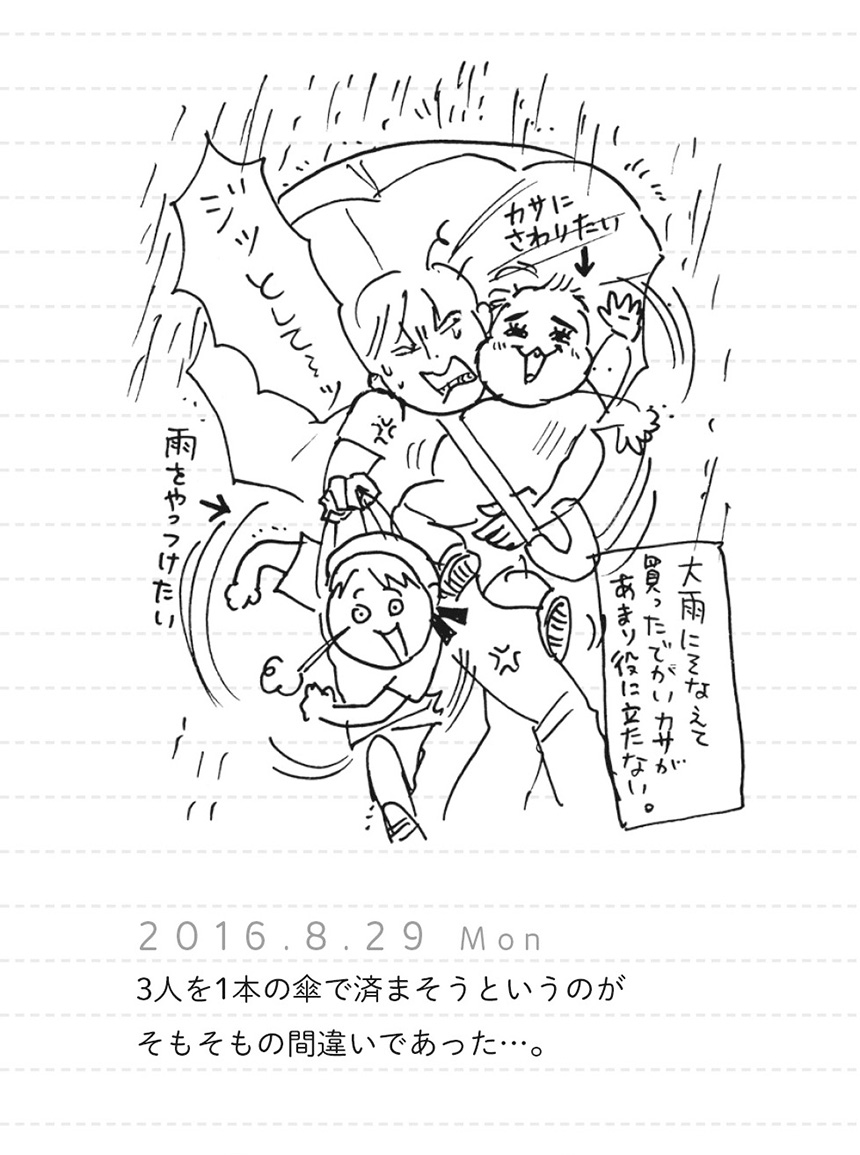 ジッとこん〜ッ
カサに
さわりたい
雨をやっつけたい
大雨にそなえて
買ったでがいカサが
あまり役に立たない。
2016.8.29 Mon
3人を1本の傘で済まそうというのが
そもそもの間違いであった…。